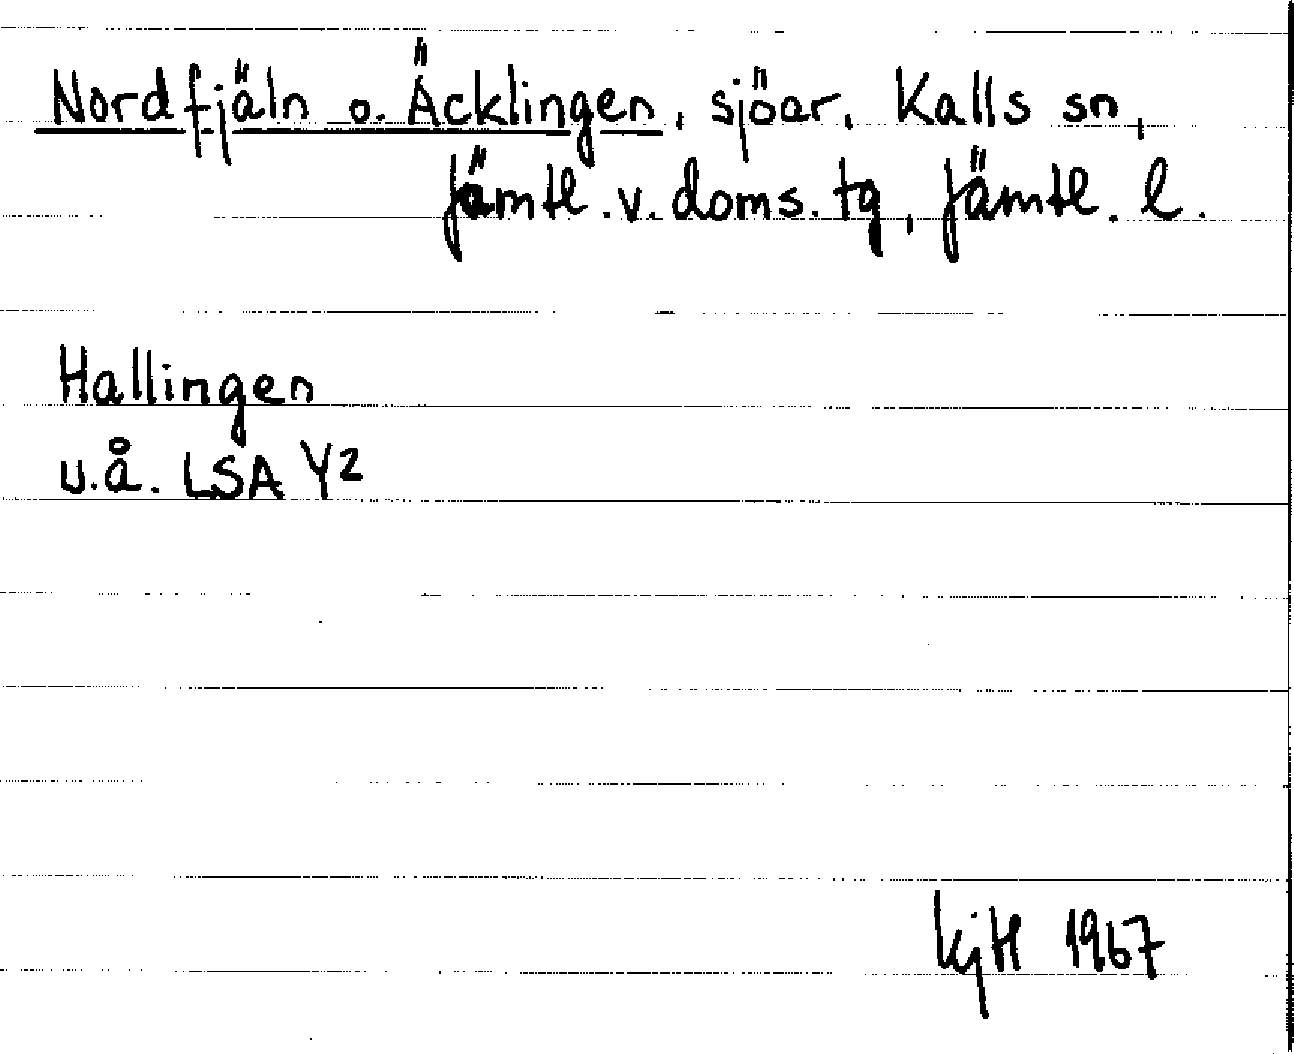 Nordfjäln o. Äcklingen, sjöar, Kalls sn,
Jämtl. v. doms. tg, Jämtl. l.
Hallingen
u.å. LSA Y2
KjH 1967